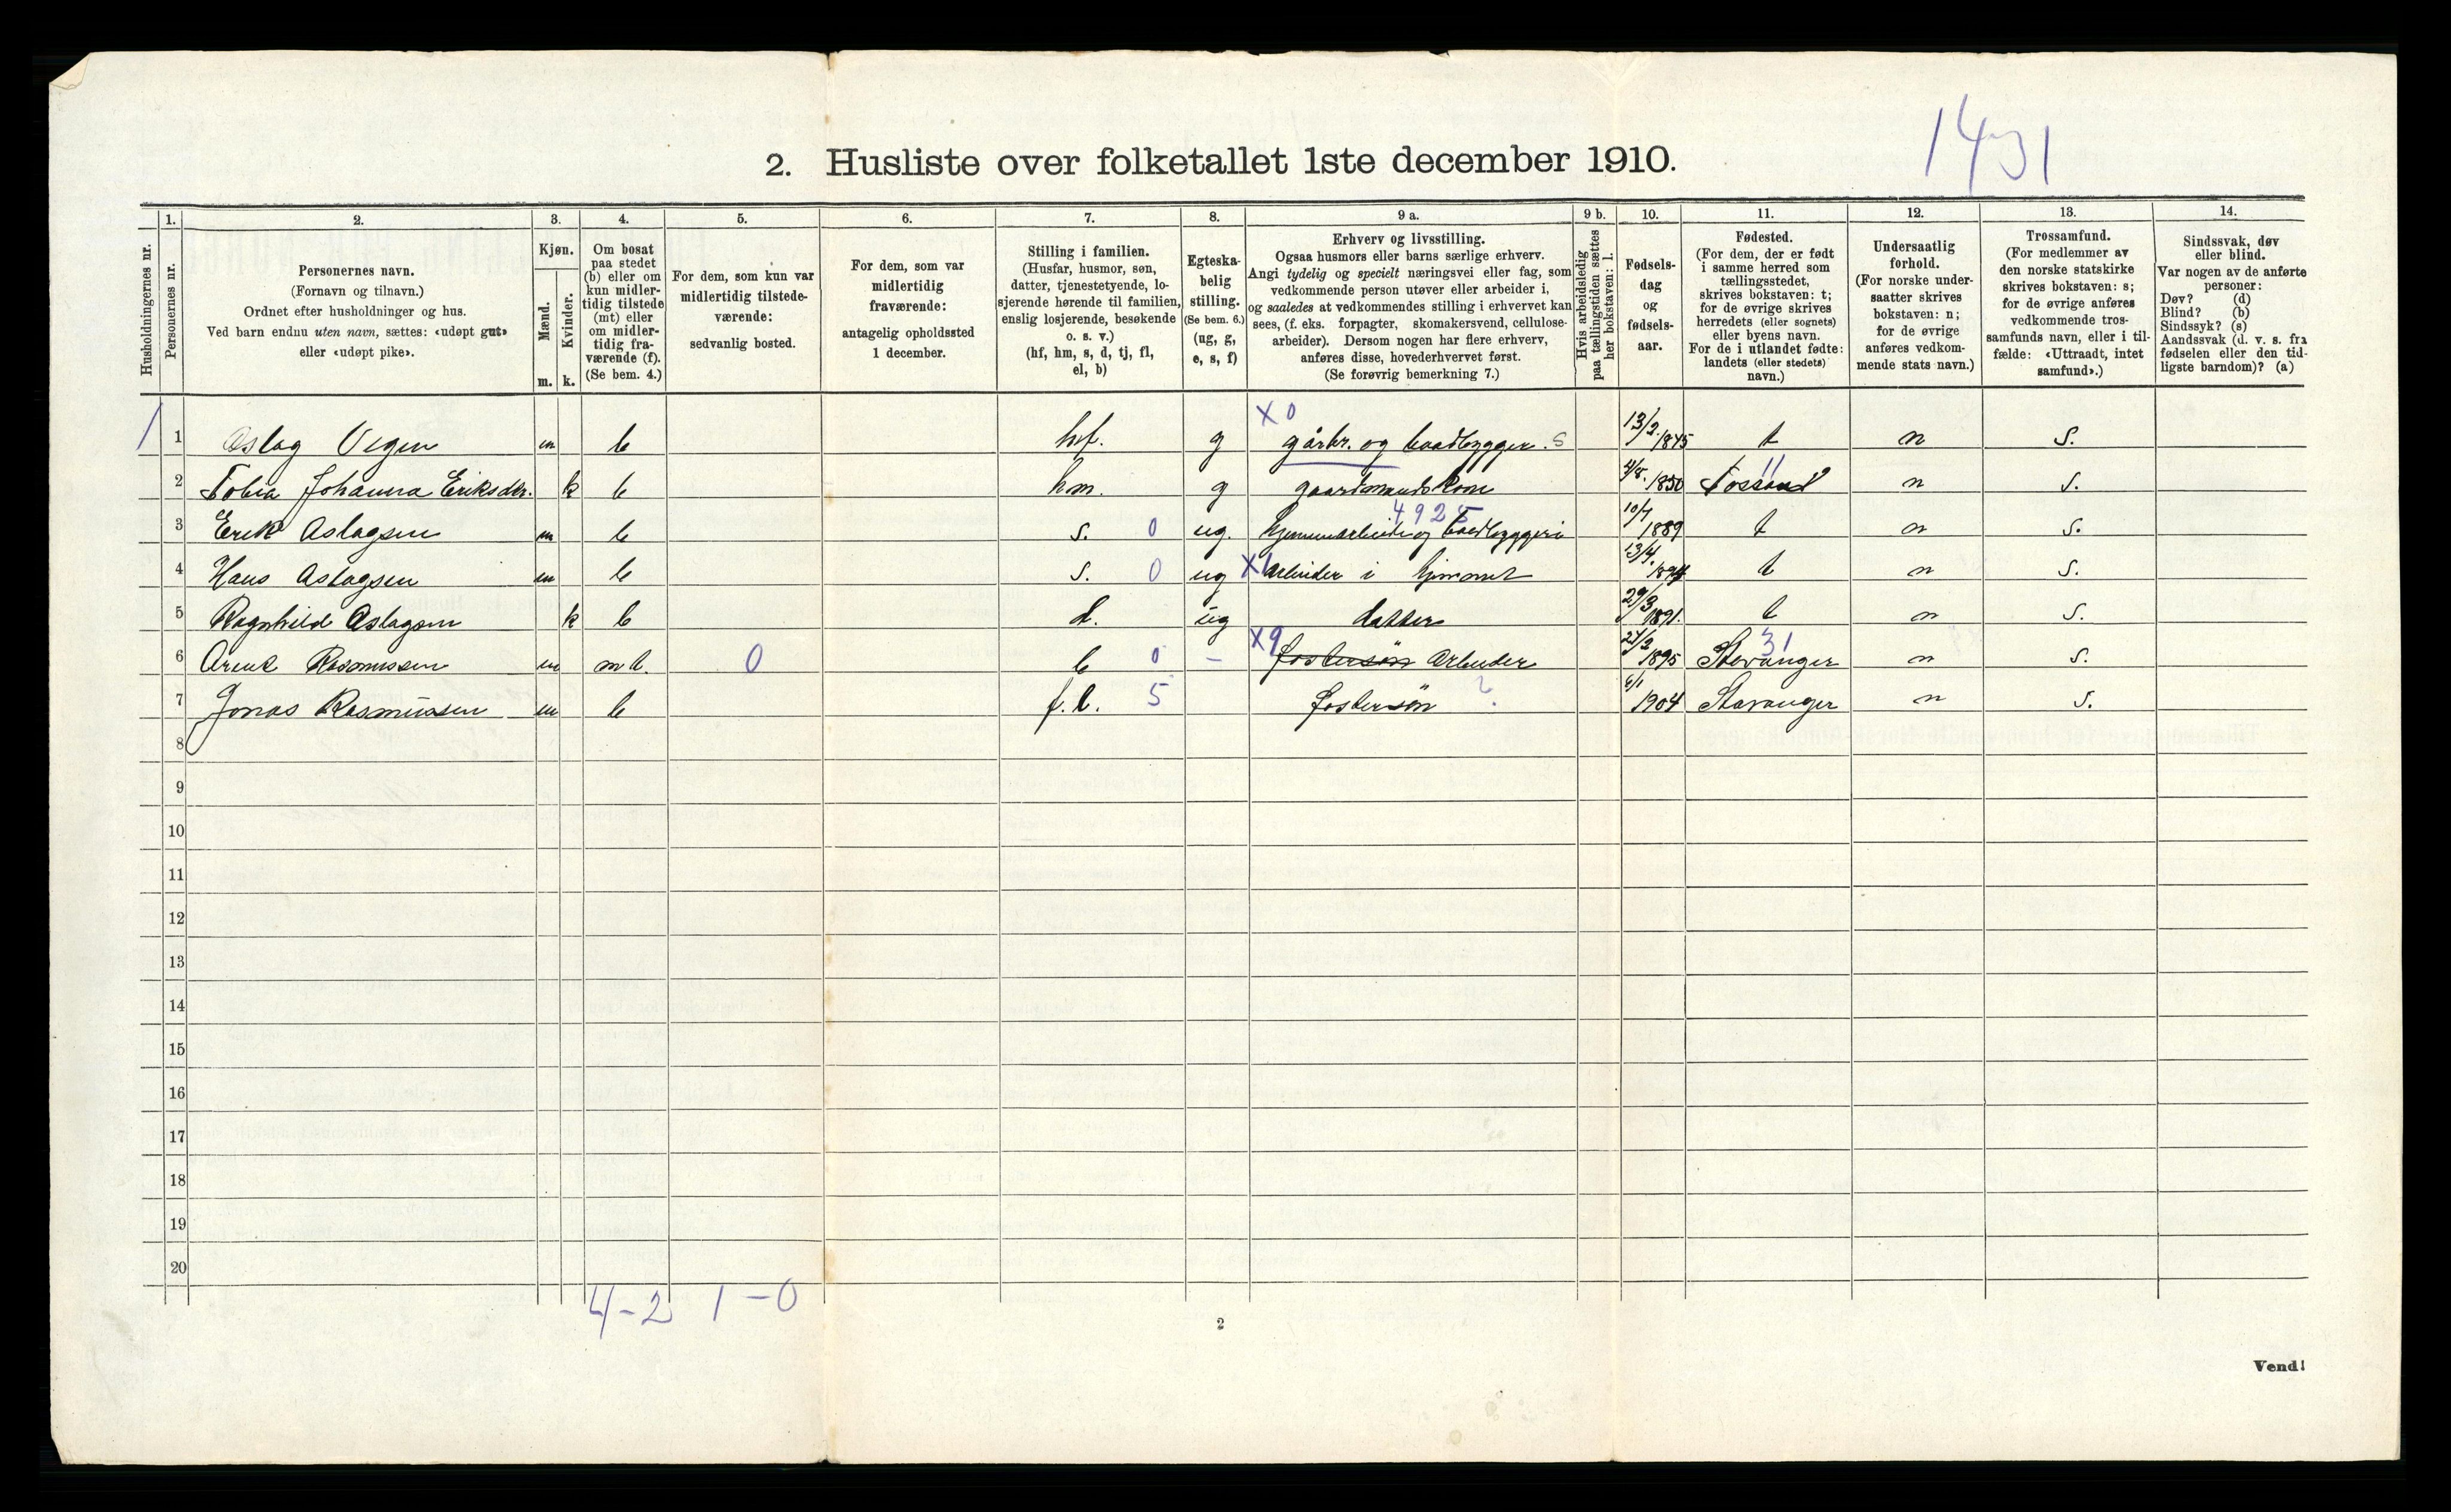 1431
2. Husliste over folketallet 1ste december 1910.
Husholdningernes nr.
1. Personernes nr.
2. Personernes navn.
(Fornavn og tilnavn.)
Ordnet efter husholdninger og hus.
Ved barn endnu uten navn, sættes: «udøpt gut»
eller «udøpt pike».
3. Kjøn.
Mænd. m.
Kvinder. k.
4. Om bosat
paa stedet
(b) eller om
kun midler-
tidig tilstede
(mt) eller
om midler-
tidig fra-
værende (f).
(Se bem. 4.)
5. For dem, som kun var
midlertidig tilstede-
værende:
sedvanlig bosted.
6. For dem, som var
midlertidig
fraværende:
antagelig opholdssted
1 december.
7. Stilling i familien.
(Husfar, husmor, søn,
datter, tjenestetyende, lo-
sjerende hørende til familien,
enslig losjerende, besøkende
o. s. v.)
(hf, hm, s, d, tj, fl,
el, b)
8. Egteska-
belig
stilling.
(Se bem. 6.)
(ug, g,
e, s, f)
9 a. Erhverv og livsstilling.
Ogsaa husmors eller barns særlige erhverv.
Angi tydelig og specielt næringsvei eller fag, som
vedkommende person utøver eller arbeider i,
og saaledes at vedkommendes stilling i erhvervet kan
sees, (f. eks. forpagter, skomakersvend, cellulose-
arbeider). Dersom nogen har flere erhverv,
anføres disse, hovederhvervet først.
(Se forøvrig bemerkning 7.)
9 b. Hvis arbeidsledig
paa tællingstiden sættes
her bokstaven: l.
10. Fødsels-
dag
og
fødsels-
aar.
11. Fødested.
(For dem, der er født
i samme herred som
tællingsstedet,
skrives bokstaven: t;
for de øvrige skrives
herredets (eller sognets)
eller byens navn.
For de i utlandet fødte:
landets (eller stedets)
navn.)
12. Undersaatlig
forhold.
(For norske under-
saatter skrives
bokstaven: n;
for de øvrige
anføres vedkom-
mende stats navn.)
13. Trossamfund.
(For medlemmer av
den norske statskirke
skrives bokstaven: s;
for de øvrige anføres
vedkommende tros-
samfunds navn, eller i til-
fælde: «Uttraadt, intet
samfund».)
14. Sindssvak, døv
eller blind.
Var nogen av de anførte
personer:
Døv? (d)
Blind? (b)
Sindssyk? (s)
Aandssvak (d. v. s. fra
fødselen eller den tid-
ligste barndom)? (a)
1 1 Aslag Vegen m b hf. g X0 gårbr. og baadbygger. S 13/2 1845 t n S.
2 Tobia Johanna Eriksdtr. k b hm. g gaardmands kone 1850 n S.
3 Erik Aslagsen m b s. 0 ug. hjemmearbeide og baadbyggeri 4925 10/7 1889 t n S.
4 Hans Aslagsen m b s. 0 ug X1 Arbeider i hjemmet 13/4 1894 t n S.
5 Ragnhild Aslagsen k b d. ug datter 29/3 1891. t n S.
6 Rasmussen m mt. 0 b 0 – X9 fostersøn Arbeider 1895 Stavanger 31 n S.
7 Jonas Rasmussen m b f.b. 5 fostersøn ? 6/1 1904 Stavanger n S.
8
9
10
11
12
13
14
15
16
17
18
19
20
4 – 2 1 – 0
2
Vend!